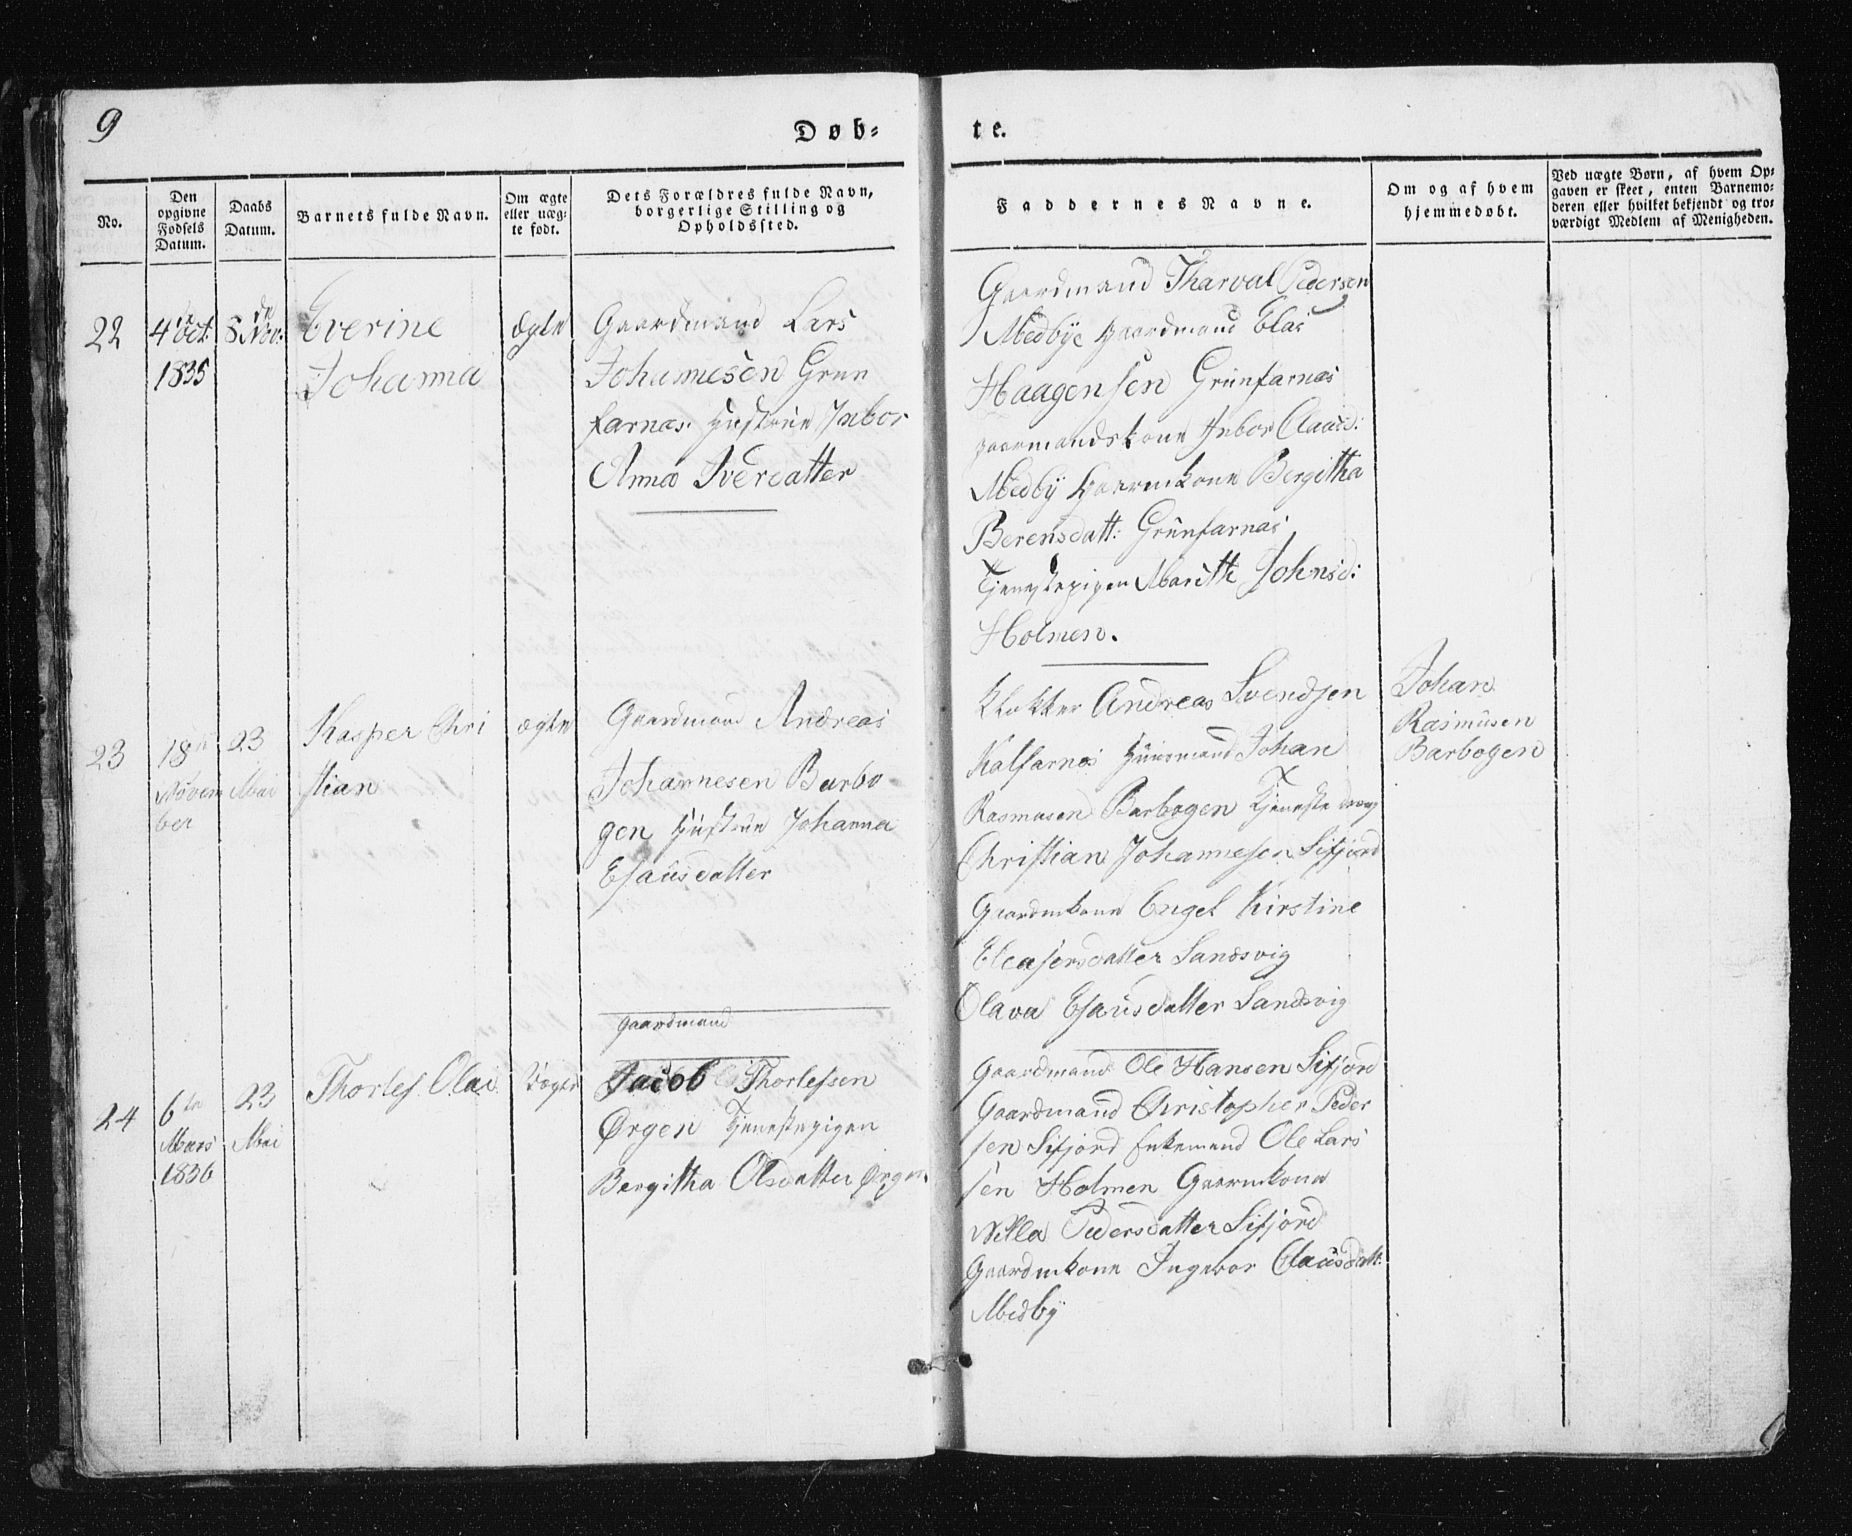 9
Døb-
te.
No.
Den opgivne Fødsels Datum.
Daabs Datum.
Barnets fulde Navn.
Om ægte eller uæg-
te født.
Dets Forældres fulde Navn,
borgerlige Stilling og
Opholdssted.
Faddernes Navne.
Om og af hvem
hjemmedøbt.
Ved uægte Børn, af hvem Op-
gaven er skeet, enten Barnemo-
deren eller hvilket bekjendt og tro-
værdigt Medlem af Menigheden.
22
4de Oct.
1835
8de Nov:
Everine
Johanna
Ægte
Gaardmand Lars
Johannesen Grun
farnæs. Hustrue Inbor
Anna Iverdatter
Gaardmand Tharval Pedersen
Medbye Gaardmand Elas
Haagensen Grünfarnæs
gaarmandskone Inbor Claasd:
Medbÿ Gaarmkone Bergitha
Berensdatt: Grünfarnæs
Tjenestepigen Marithe Johnsd:
Holmen.
23
18de
Novem
ber
23
Mai
Kasper Chri
stian
ægte
Gaardmand Andreas
Johannesen Barbo
gen Hustrue Johanna
Esaüsdatter
Klokker Andreas Svendsen
Kalfarnes Huusmand Johan
Rasmusen Barbogen Tjenestedreng
Christian Johannesen Sifjord
Gaardmkone Engel Kirstine
Eleasersdatter Sandsvig
Olava Esaüsdatter Sandsvig
Johan
Rasmüsen
Barbogen
24
6te
Mars
1836
23
Mai
Thorles Olai
Uægte
Gaardmand
Jacob Thorlessen
Ørgen Tjenestepigen
Bergitha Olsdatter Ørgen
Gaardmand Ole Hansen Sifjord
Gaardmand Christopher Peder
sen Sifjord Enkemand Ole Lars
sen Holmen Gaarmkone
Nilla Pedersdatter Sifjord
Gaardmkone Ingebor Clausdatt:
Medbÿ